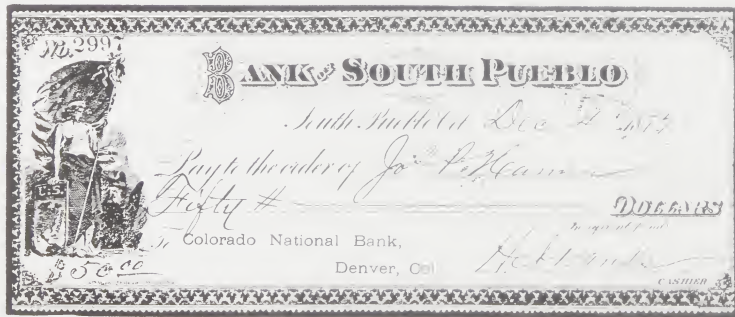 No. 2997
BANK OF SOUTH PUEBLO
South Pueblo Dec
Pay to the order of Jos
Fifty #
DOLLARS
U.S.
To Colorado National Bank,
$50 00
Denver, Col
CASHIER